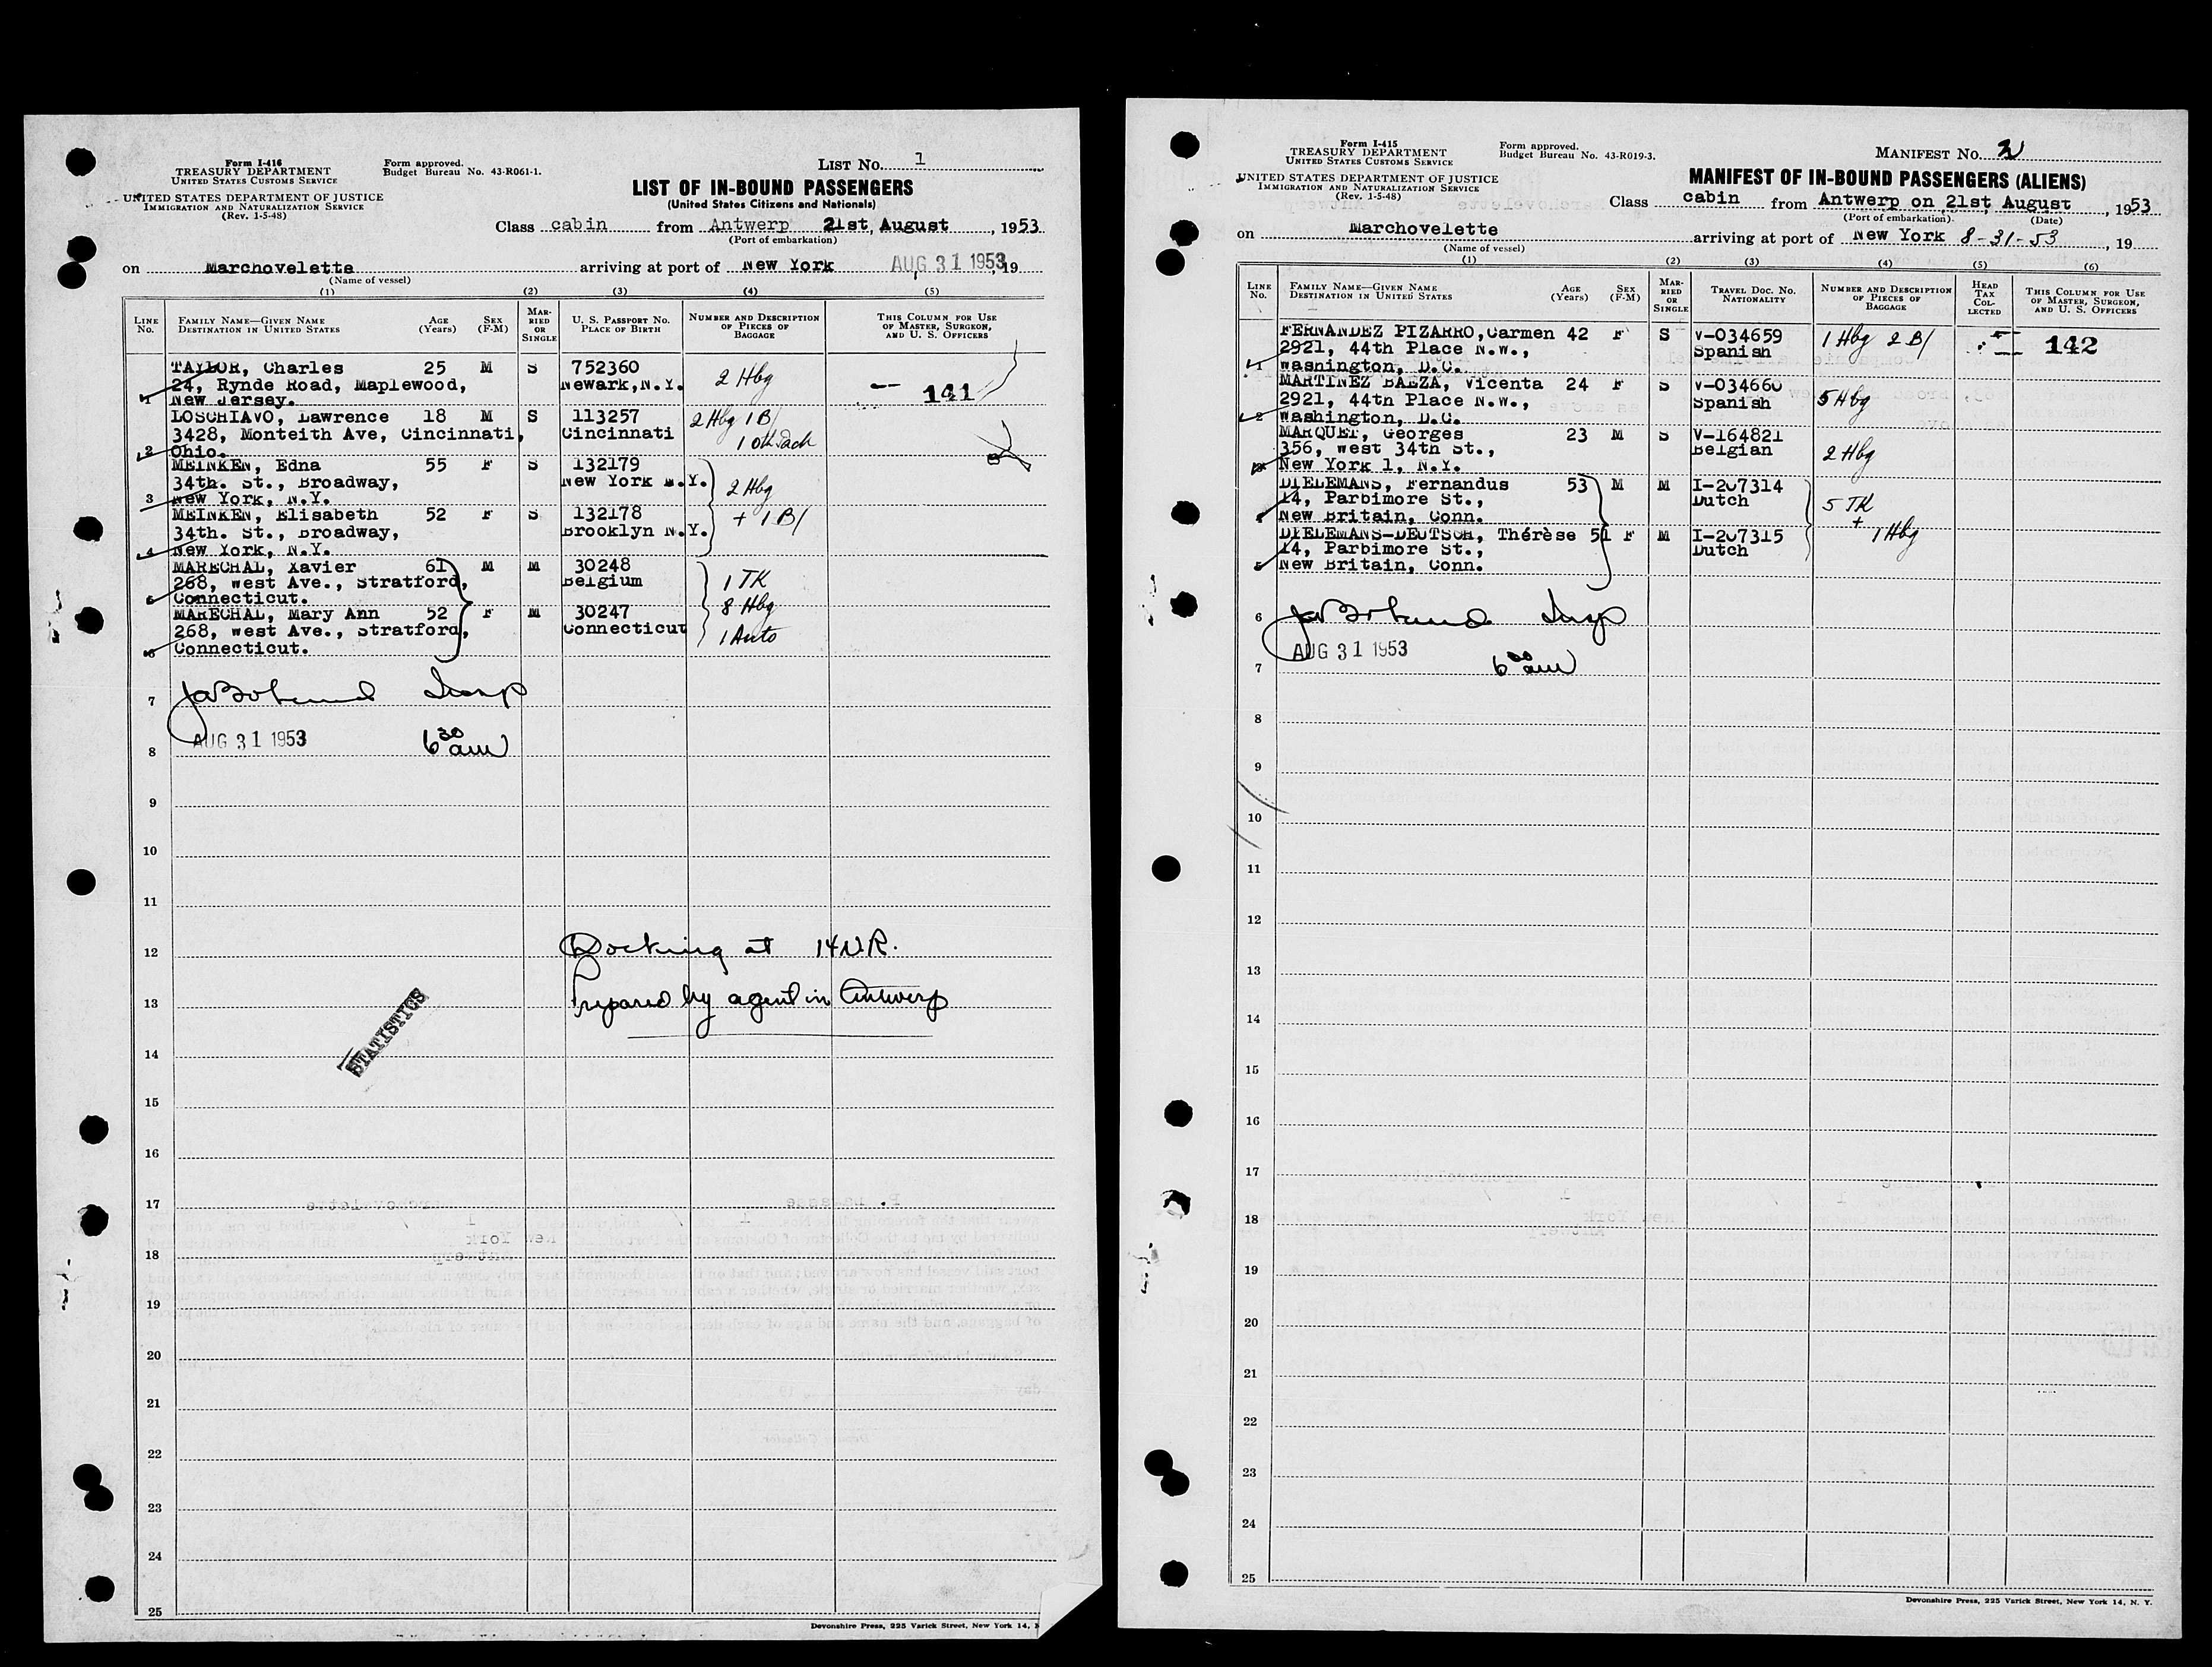 Form I-416
TREASURY DEPARTMENT
UNITED STATES CUSTOMS SERVICE
UNITED STATES DEPARTMENT OF JUSTICE
IMMIGRATION AND NATURALIZATION SERVICE
(Rev. 1-5-48)
Form approved.
Budget Bureau No. 43-R061-1.
LIST No. 1
LIST OF IN-BOUND PASSENGERS
(United States Citizens and Nationals)
Class cabin from Antwerp 21st, August, 1953
(Port of embarkation)
on Marchovelette arriving at port of New York AUG 31 1953, 19
(Name of vessel)
(1) (2) (3) (4) (5)
LINE No. FAMILY NAME—GIVEN NAME DESTINATION IN UNITED STATES AGE (Years) SEX (F-M) MARRIED OR SINGLE U. S. PASSPORT No. PLACE OF BIRTH NUMBER AND DESCRIPTION OF PIECES OF BAGGAGE THIS COLUMN FOR USE OF MASTER, SURGEON, AND U. S. OFFICERS
TAYLOR, Charles 25 M S 752360 2 Hbg
24, Rynde Road, Maplewood, Newark, N.Y. — 141
1 New Jersey.
LOSCHIAVO, Lawrence 18 M S 113257 2 Hbg 1 B/
3428, Monteith Ave, Cincinnati, Cincinnati
2 Ohio.
MEINKEN, Edna 55 F S 132179
34th. St., Broadway, New York N.Y. 2 Hbg
3 New York, N.Y.
MEINKEN, Elisabeth 52 F S 132178 + 1 B/
34th. St., Broadway, Brooklyn N.Y.
4 New York, N.Y.
MARECHAL, Xavier 61 M M 30248
268, West Ave., Stratford, Belgium 1 TK
5 Connecticut. 8 Hbg
MARECHAL, Mary Ann 52 F M 30247
268, West Ave., Stratford, Connecticut 1 Auto
6 Connecticut.
7 Insp
8 AUG 31 1953 6 30 am
9
10
11
12 Docking at 14 N.R.
13 Prepared by agent in Antwerp
STATISTICS
14
15
16
17
18
19
20
21
22
23
24
25
Devonshire Press, 225 Varick Street, New York 14,
Form I-415
TREASURY DEPARTMENT
UNITED STATES CUSTOMS SERVICE
UNITED STATES DEPARTMENT OF JUSTICE
IMMIGRATION AND NATURALIZATION SERVICE
(Rev. 1-5-48)
Form approved.
Budget Bureau No. 43-R019-3.
MANIFEST No. 2
MANIFEST OF IN-BOUND PASSENGERS (ALIENS)
Class cabin from Antwerp on 21st August, 1953
(Port of embarkation) (Date)
on Marchovelette arriving at port of New York 8-31-53, 19
(Name of vessel)
(1) (2) (3) (4) (5) (6)
LINE No. FAMILY NAME—GIVEN NAME DESTINATION IN UNITED STATES AGE (Years) SEX (F-M) MARRIED OR SINGLE TRAVEL DOC. No. NATIONALITY NUMBER AND DESCRIPTION OF PIECES OF BAGGAGE HEAD TAX COLLECTED THIS COLUMN FOR USE OF MASTER, SURGEON, AND U. S. OFFICERS
FERNANDEZ PIZARRO, Carmen 42 F S V-034659 1 Hbg 2 B/ 142
2921, 44th Place N.W., Spanish
1 Washington, D.C.
MARTINEZ BAEZA, Vicenta 24 F S V-034660 5 Hbg
2921, 44th Place N.W., Spanish
2 Washington, D.C.
MARQUET, Georges 23 M S V-164821
356, West 34th St., Belgian 2 Hbg
New York 1, N.Y.
DIELEMANS, Fernandus 53 M M I-207314
14, Parbimore St., Dutch 5 TK
4 New Britain, Conn. +
DIELEMANS-DEUTSCH, Thérèse 51 F M I-207315 1 Hbg
14, Parbimore St., Dutch
5 New Britain, Conn.
6 Insp
AUG 31 1953
7 6 00 am
8
9
10
11
12
13
14
15
16
17
18
19
20
21
22
23
24
25
Devonshire Press, 225 Varick Street, New York 14, N. Y.